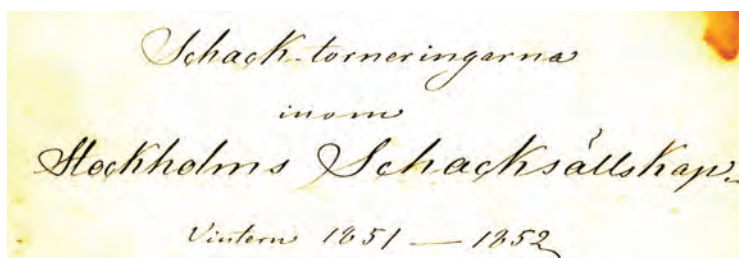 Schack-torneringarna
inom
Stockholms Schacksällskap.
Vintern 1851 — 1852